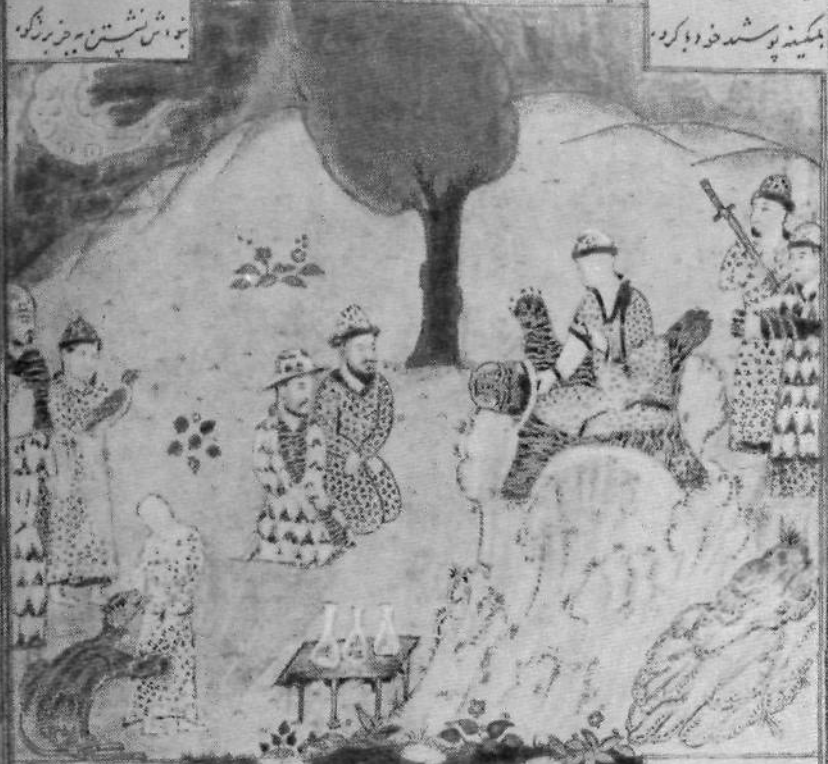 پلنگینه پوشید خود با کروه
نبودش نشستن بجز برز کوه